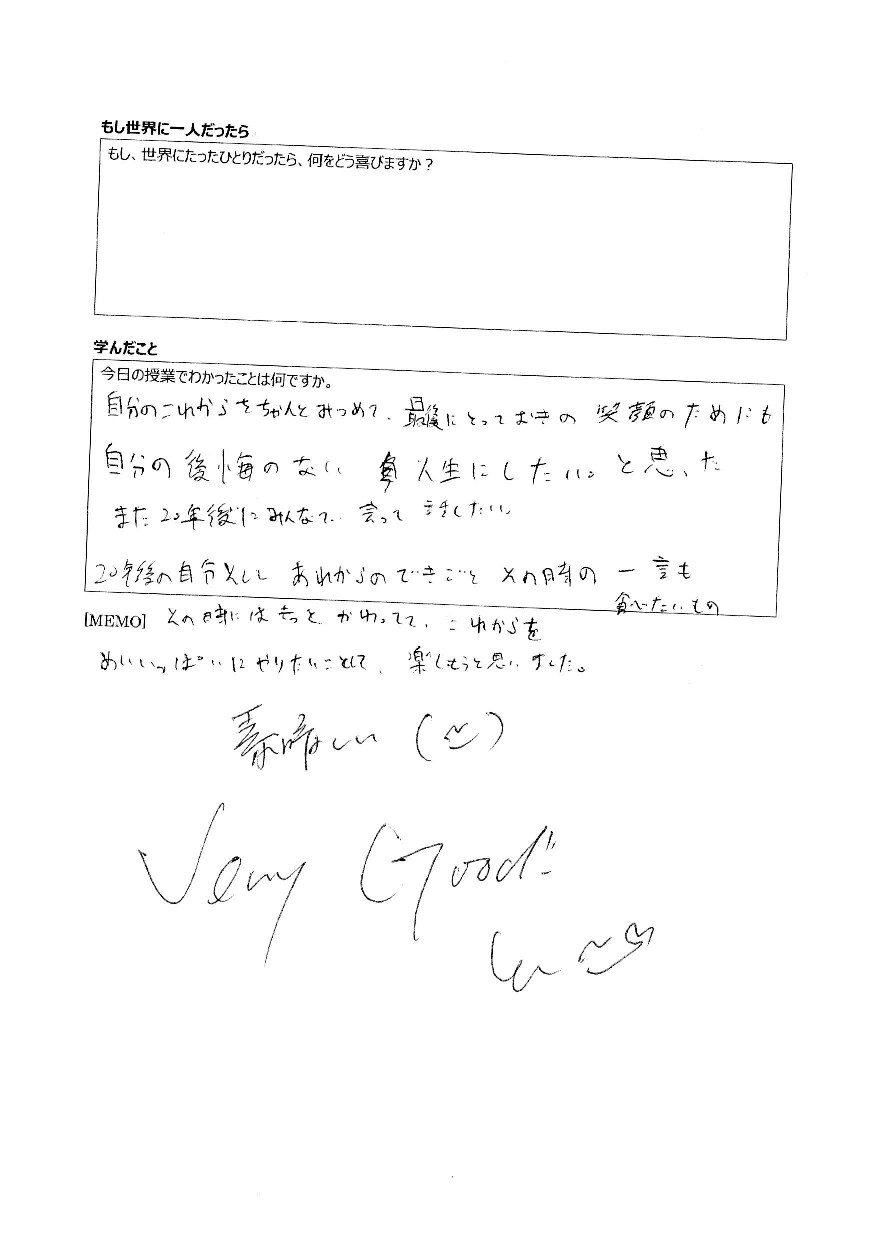 もし世界に一人だったら
もし、世界にたったひとりだったら、何をどう喜びますか？
学んだこと
今日の授業でわかったことは何ですか。
自分のこれからをちゃんとみつめて、最後にとっておきの 笑顔のためにも
自分の後悔のない 人生にしたい。と思った
また20年後にみんなで 会って 話したい。
20年後の自分として あれからのできごと その時の 一言も
食べたいもの
[MEMO] その時にはもっと かわってて、これからを
めいいっぱいにやりたいことして、楽しもうと思いました。
素晴しい
Very Good!!